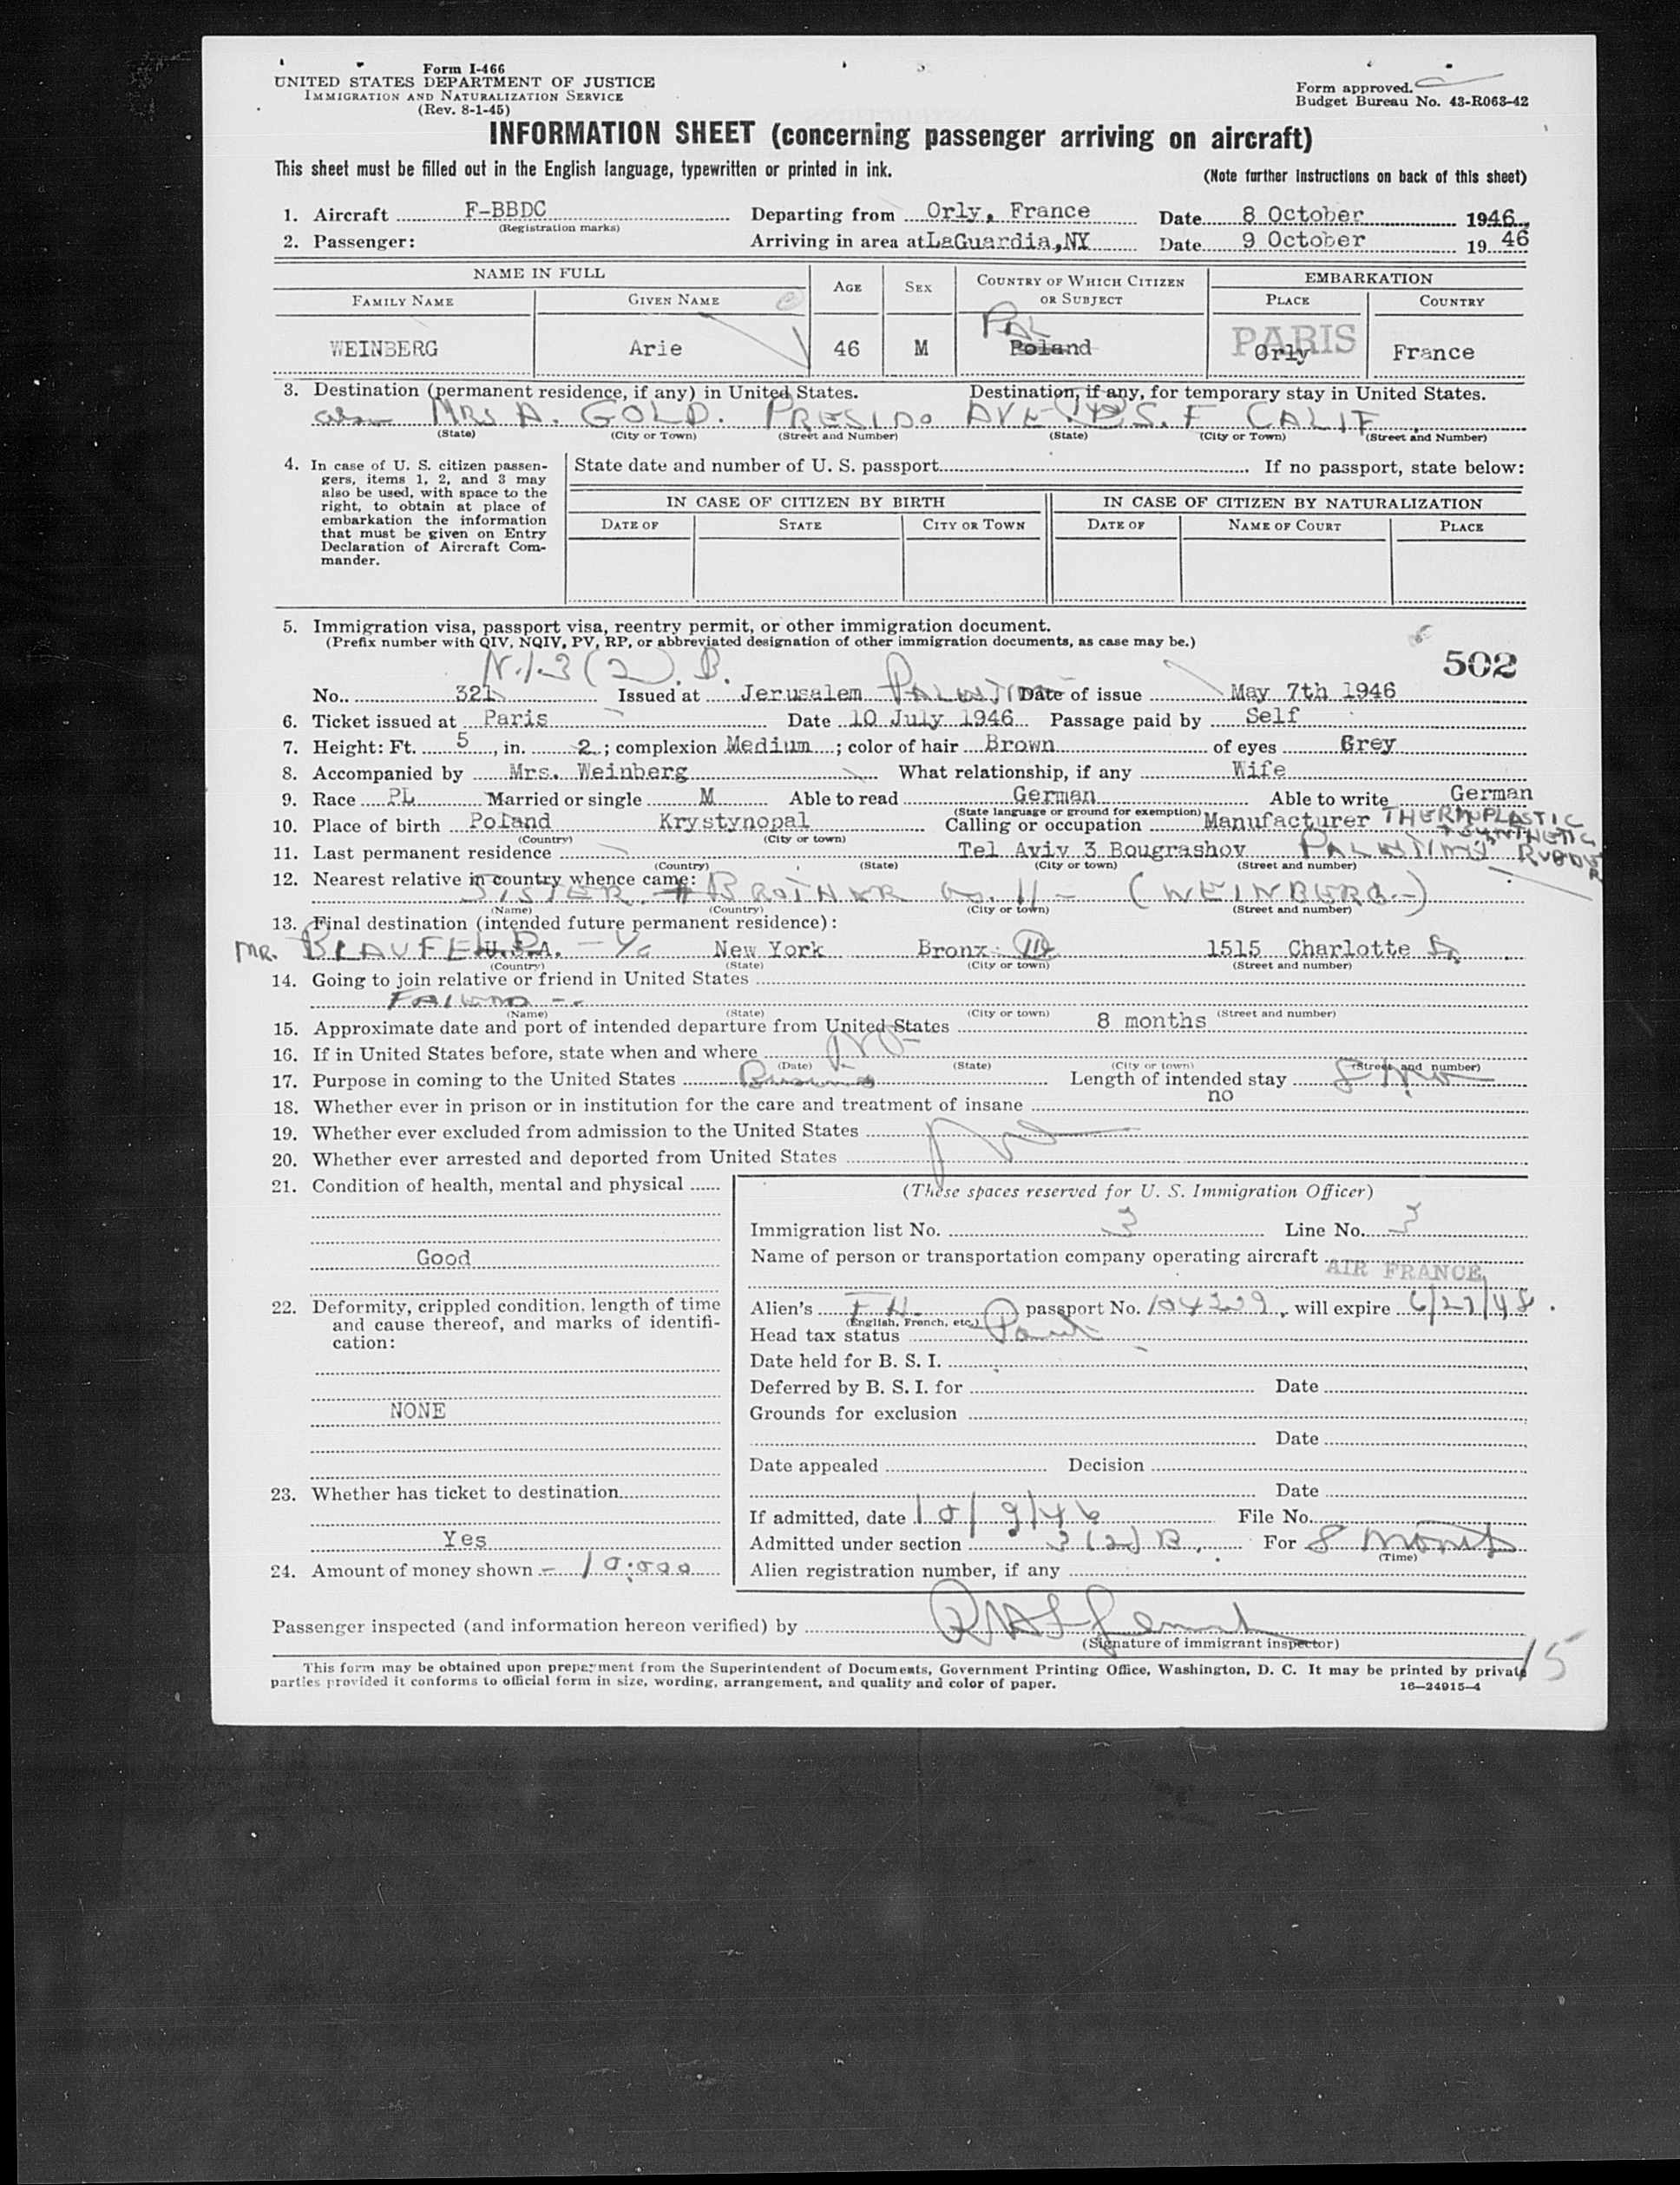 Form I-466
UNITED STATES DEPARTMENT OF JUSTICE
IMMIGRATION AND NATURALIZATION SERVICE
(Rev. 8-1-45)
Form approved.
Budget Bureau No. 43-R063-42
INFORMATION SHEET (concerning passenger arriving on aircraft)
This sheet must be filled out in the English language, typewritten or printed in ink.
(Note further instructions on back of this sheet)
1. Aircraft F-BBDC Departing from Orly, France Date 8 October 1946
(Registration marks)
2. Passenger: Arriving in area at LaGuardia,NY Date 9 October 19 46
NAME IN FULL AGE SEX COUNTRY OF WHICH CITIZEN OR SUBJECT EMBARKATION
FAMILY NAME GIVEN NAME PLACE COUNTRY
PAL PARIS
WEINBERG Arie 46 M Poland Orly France
3. Destination (permanent residence, if any) in United States. Destination, if any, for temporary stay in United States.
MRS A. GOLD. PRESIDO AVE S.F CALIF
(State) (City or Town) (Street and Number) (State) (City or Town) (Street and Number)
4. In case of U. S. citizen passengers, items 1, 2, and 3 may also be used, with space to the right, to obtain at place of embarkation the information that must be given on Entry Declaration of Aircraft Commander.
State date and number of U. S. passport If no passport, state below:
IN CASE OF CITIZEN BY BIRTH IN CASE OF CITIZEN BY NATURALIZATION
DATE OF STATE CITY OR TOWN DATE OF NAME OF COURT PLACE
5. Immigration visa, passport visa, reentry permit, or other immigration document.
(Prefix number with QIV, NQIV, PV, RP, or abbreviated designation of other immigration documents, as case may be.)
502
3(2).B.
No. 321 Issued at Jerusalem Date of issue May 7th 1946
6. Ticket issued at Paris Date 10 July 1946 Passage paid by Self
7. Height: Ft. 5, in. 2; complexion Medium; color of hair Brown of eyes Grey
8. Accompanied by Mrs. Weinberg What relationship, if any Wife
9. Race PL Married or single M Able to read German Able to write German
(State language or ground for exemption)
10. Place of birth Poland Krystynopal Calling or occupation Manufacturer THERMOPLASTIC
(Country) (City or town)
SYNTHETIC
11. Last permanent residence Tel Aviv 3 Bougrashov RUBBER
(Country) (State) (City or town) (Street and number)
12. Nearest relative in country whence came:
SISTER BROTHER (WEINBERG-)
(Name) (Country) (City or town) (Street and number)
13. Final destination (intended future permanent residence):
MR. U.S.A. New York Bronx 1515 Charlotte
(Country) (State) (City or town) (Street and number)
14. Going to join relative or friend in United States
(Name) (State) (City or town) (Street and number)
15. Approximate date and port of intended departure from United States 8 months
16. If in United States before, state when and where NO
(Date) (State) (City or town) (Street and number)
17. Purpose in coming to the United States Business Length of intended stay
18. Whether ever in prison or in institution for the care and treatment of insane no
19. Whether ever excluded from admission to the United States
20. Whether ever arrested and deported from United States
21. Condition of health, mental and physical
Good
22. Deformity, crippled condition, length of time and cause thereof, and marks of identification:
NONE
23. Whether has ticket to destination
Yes
24. Amount of money shown - 10.000
(These spaces reserved for U. S. Immigration Officer)
Immigration list No. 3 Line No. 3
Name of person or transportation company operating aircraft
AIR FRANCE
Alien's passport No. will expire 6/27/48.
(English, French, etc.)
Head tax status
Date held for B. S. I.
Deferred by B. S. I. for Date
Grounds for exclusion
Date
Date appealed Decision
Date
If admitted, date 10/9/46 File No.
Admitted under section 3(2)B. For 8 Months
(Time)
Alien registration number, if any
Passenger inspected (and information hereon verified) by
(Signature of immigrant inspector)
15
This form may be obtained upon prepayment from the Superintendent of Documents, Government Printing Office, Washington, D. C. It may be printed by private
parties provided it conforms to official form in size, wording, arrangement, and quality and color of paper.
16—24915-4